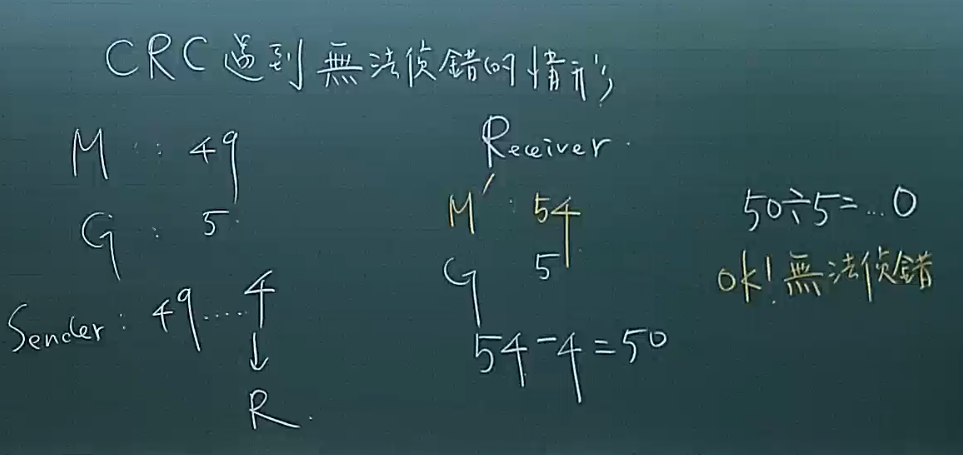 CRC 遇到無法偵錯的情形
M : 49
G : 5
Sender : 49 ..... 4
↓
R.
Receiver.
M' : 54
G 5
54-4=50
50÷5=...0
ok! 無法偵錯